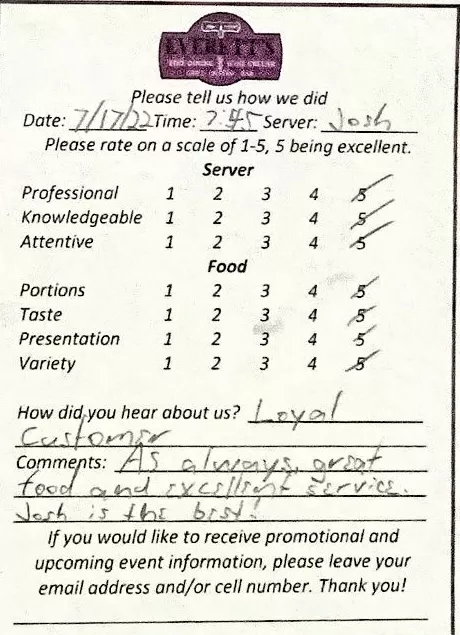 EVERETT'S
FINE DINING WINE CELLAR
Please tell us how we did
Date: 7/17/22 Time: 7:45 Server: Josh
Please rate on a scale of 1-5, 5 being excellent.
Server
Professional 1 2 3 4 5
Knowledgeable 1 2 3 4 5
Attentive 1 2 3 4 5
Food
Portions 1 2 3 4 5
Taste 1 2 3 4 5
Presentation 1 2 3 4 5
Variety 1 2 3 4 5
How did you hear about us? Loyal
Customer
Comments: As always, great
food and excellent service.
Josh is the best!
If you would like to receive promotional and
upcoming event information, please leave your
email address and/or cell number. Thank you!